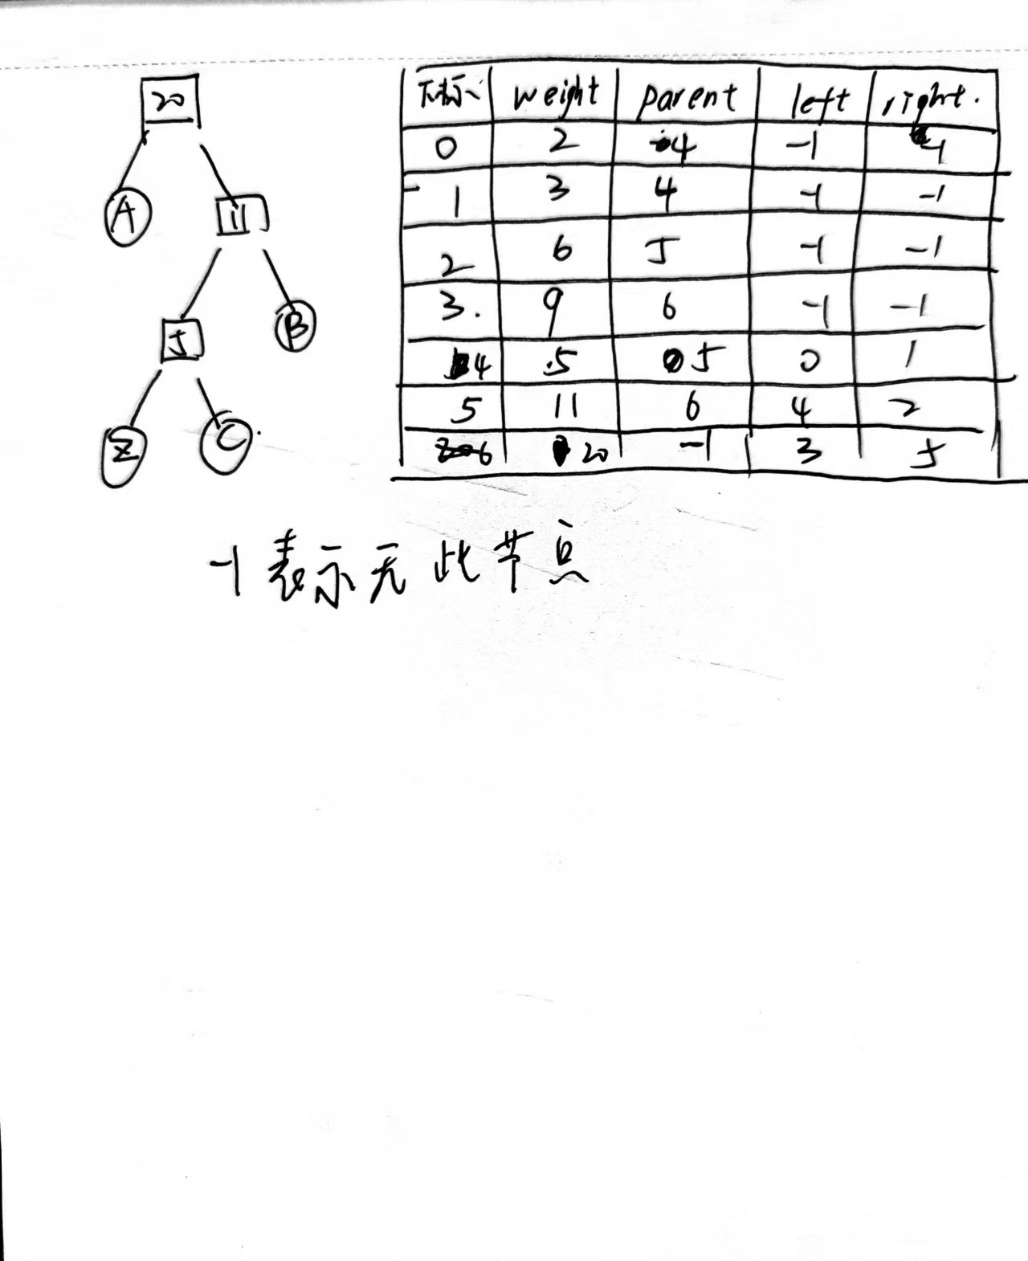 20
A 11
5 B
Z C
下标 weight parent left right.
0 2 4 -1 -1
1 3 4 -1 -1
2 6 5 -1 -1
3. 9 6 -1 -1
4 5 5 0 1
5 11 6 4 2
6 20 -1 3 5
-1表示无此节点